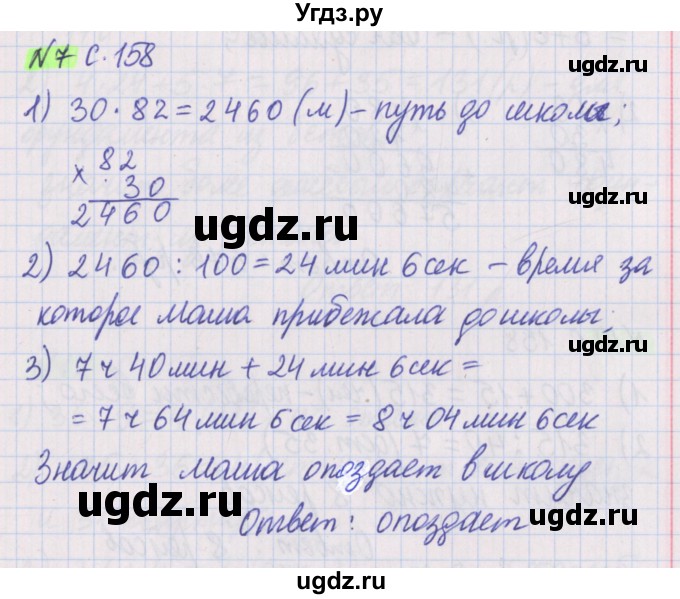 Угдз.ру
№7 с. 158
1) 30 · 82 = 2460 (м) - путь до школы;
× 82
30
2460
ugdz.ru
ugdz.ru
2) 2460 : 100 = 24 мин 6 сек - время за
которое Маша прибежала до школы;
ugdz.ru
3) 7 ч 40 мин + 24 мин 6 сек =
= 7 ч 64 мин 6 сек = 8 ч 04 мин 6 сек
Значит Маша опоздает в школу
ugdz.ru
ugdz.ru
Ответ: опоздает
ugdz.ru